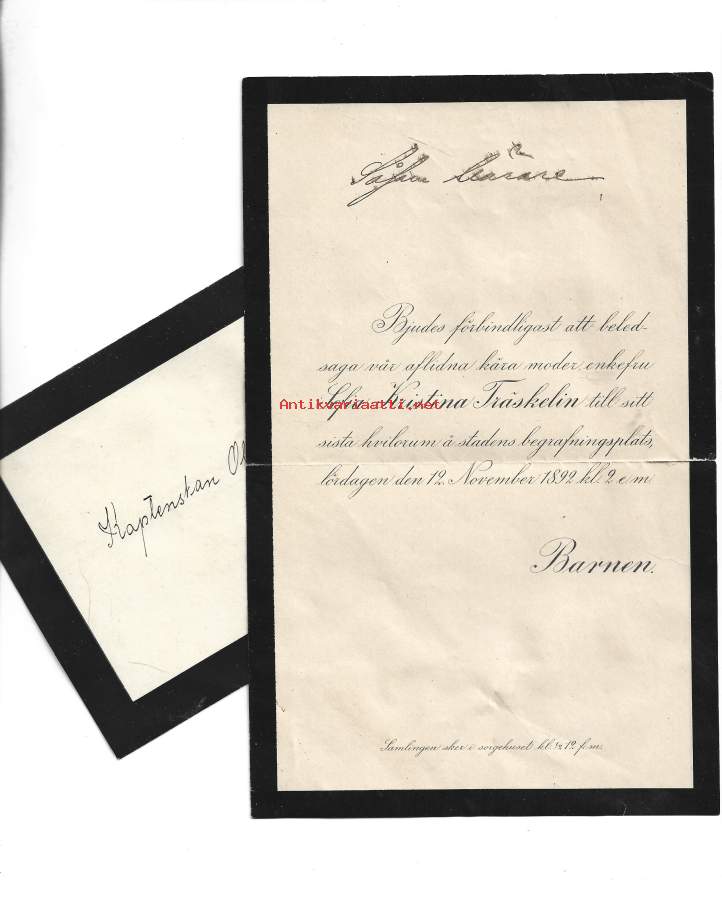 Bjudes förbindligast att beled-
saga vår aflidna kära moder, enkefru
Sofia Kristina Träskelin till sitt
sista hvilorum å stadens begrafningsplats,
lördagen den 12. November 1892 kl. 2 e.m
Barnen.
Samlingen sker i sorgehuset kl. ½ 12 f.m.
Kaptenskan
Antikvariaatti.net